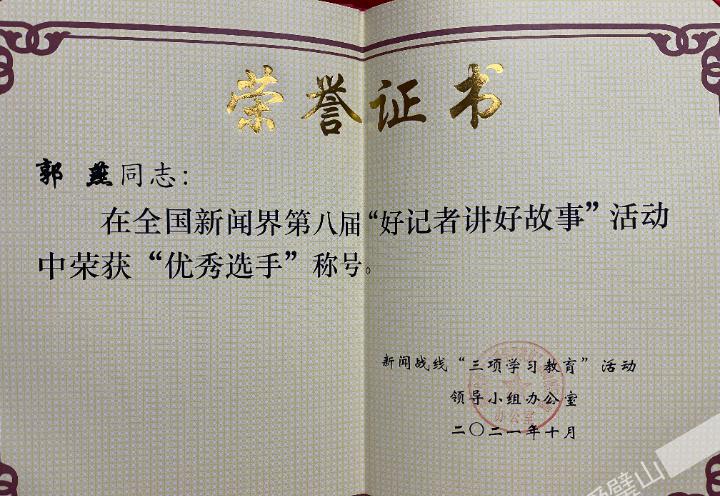 荣誉证书
郭燕同志:
在全国新闻界第八届“好记者讲好故事”活动
中荣获“优秀选手”称号。
新闻战线“三项学习教育”活动
领导小组办公室
二〇二一年十月
办公室
璧山